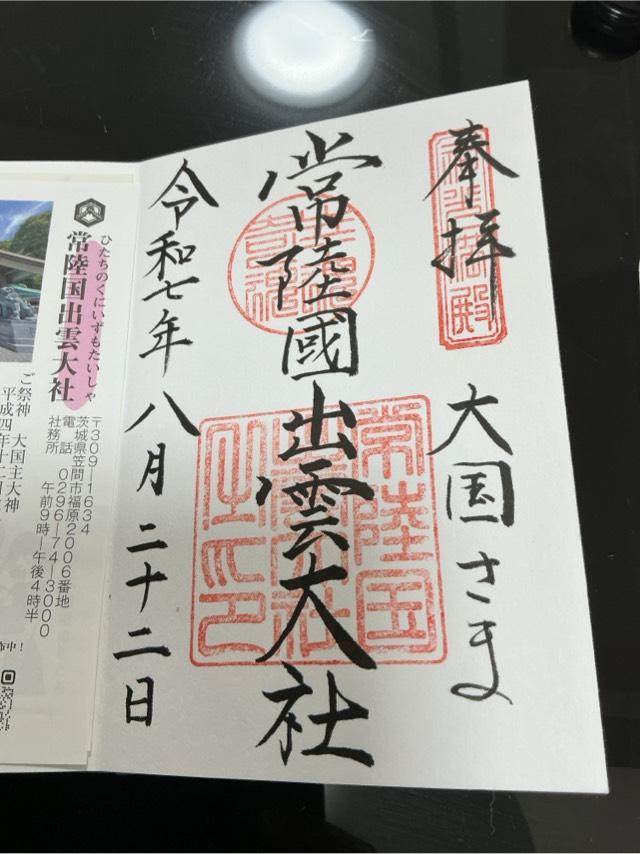 奉拝
大国さま
常陸國出雲大社
常陸国
令和七年八月二十二日
ひたちのくにいずもたいしゃ
常陸国出雲大社
〒309-1634
茨城県笠間市福原2006番地
電話 0296-74-3000
社務所 午前9時-午後4時半
ご祭神 大国主大神
平成四年十二月
中!